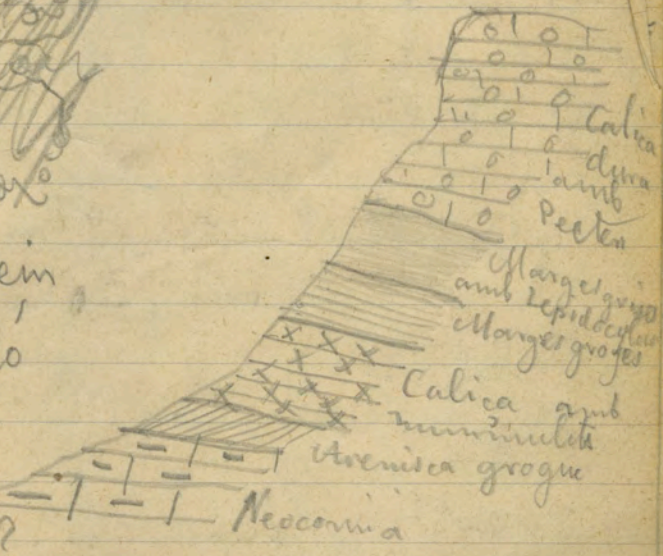 Caliça
dura
amb
Pecten
Marges grises
amb Lepidocyclines
Marges grogues
Caliça amb
nummulits
Arenisca grogue
Neocomià
ein